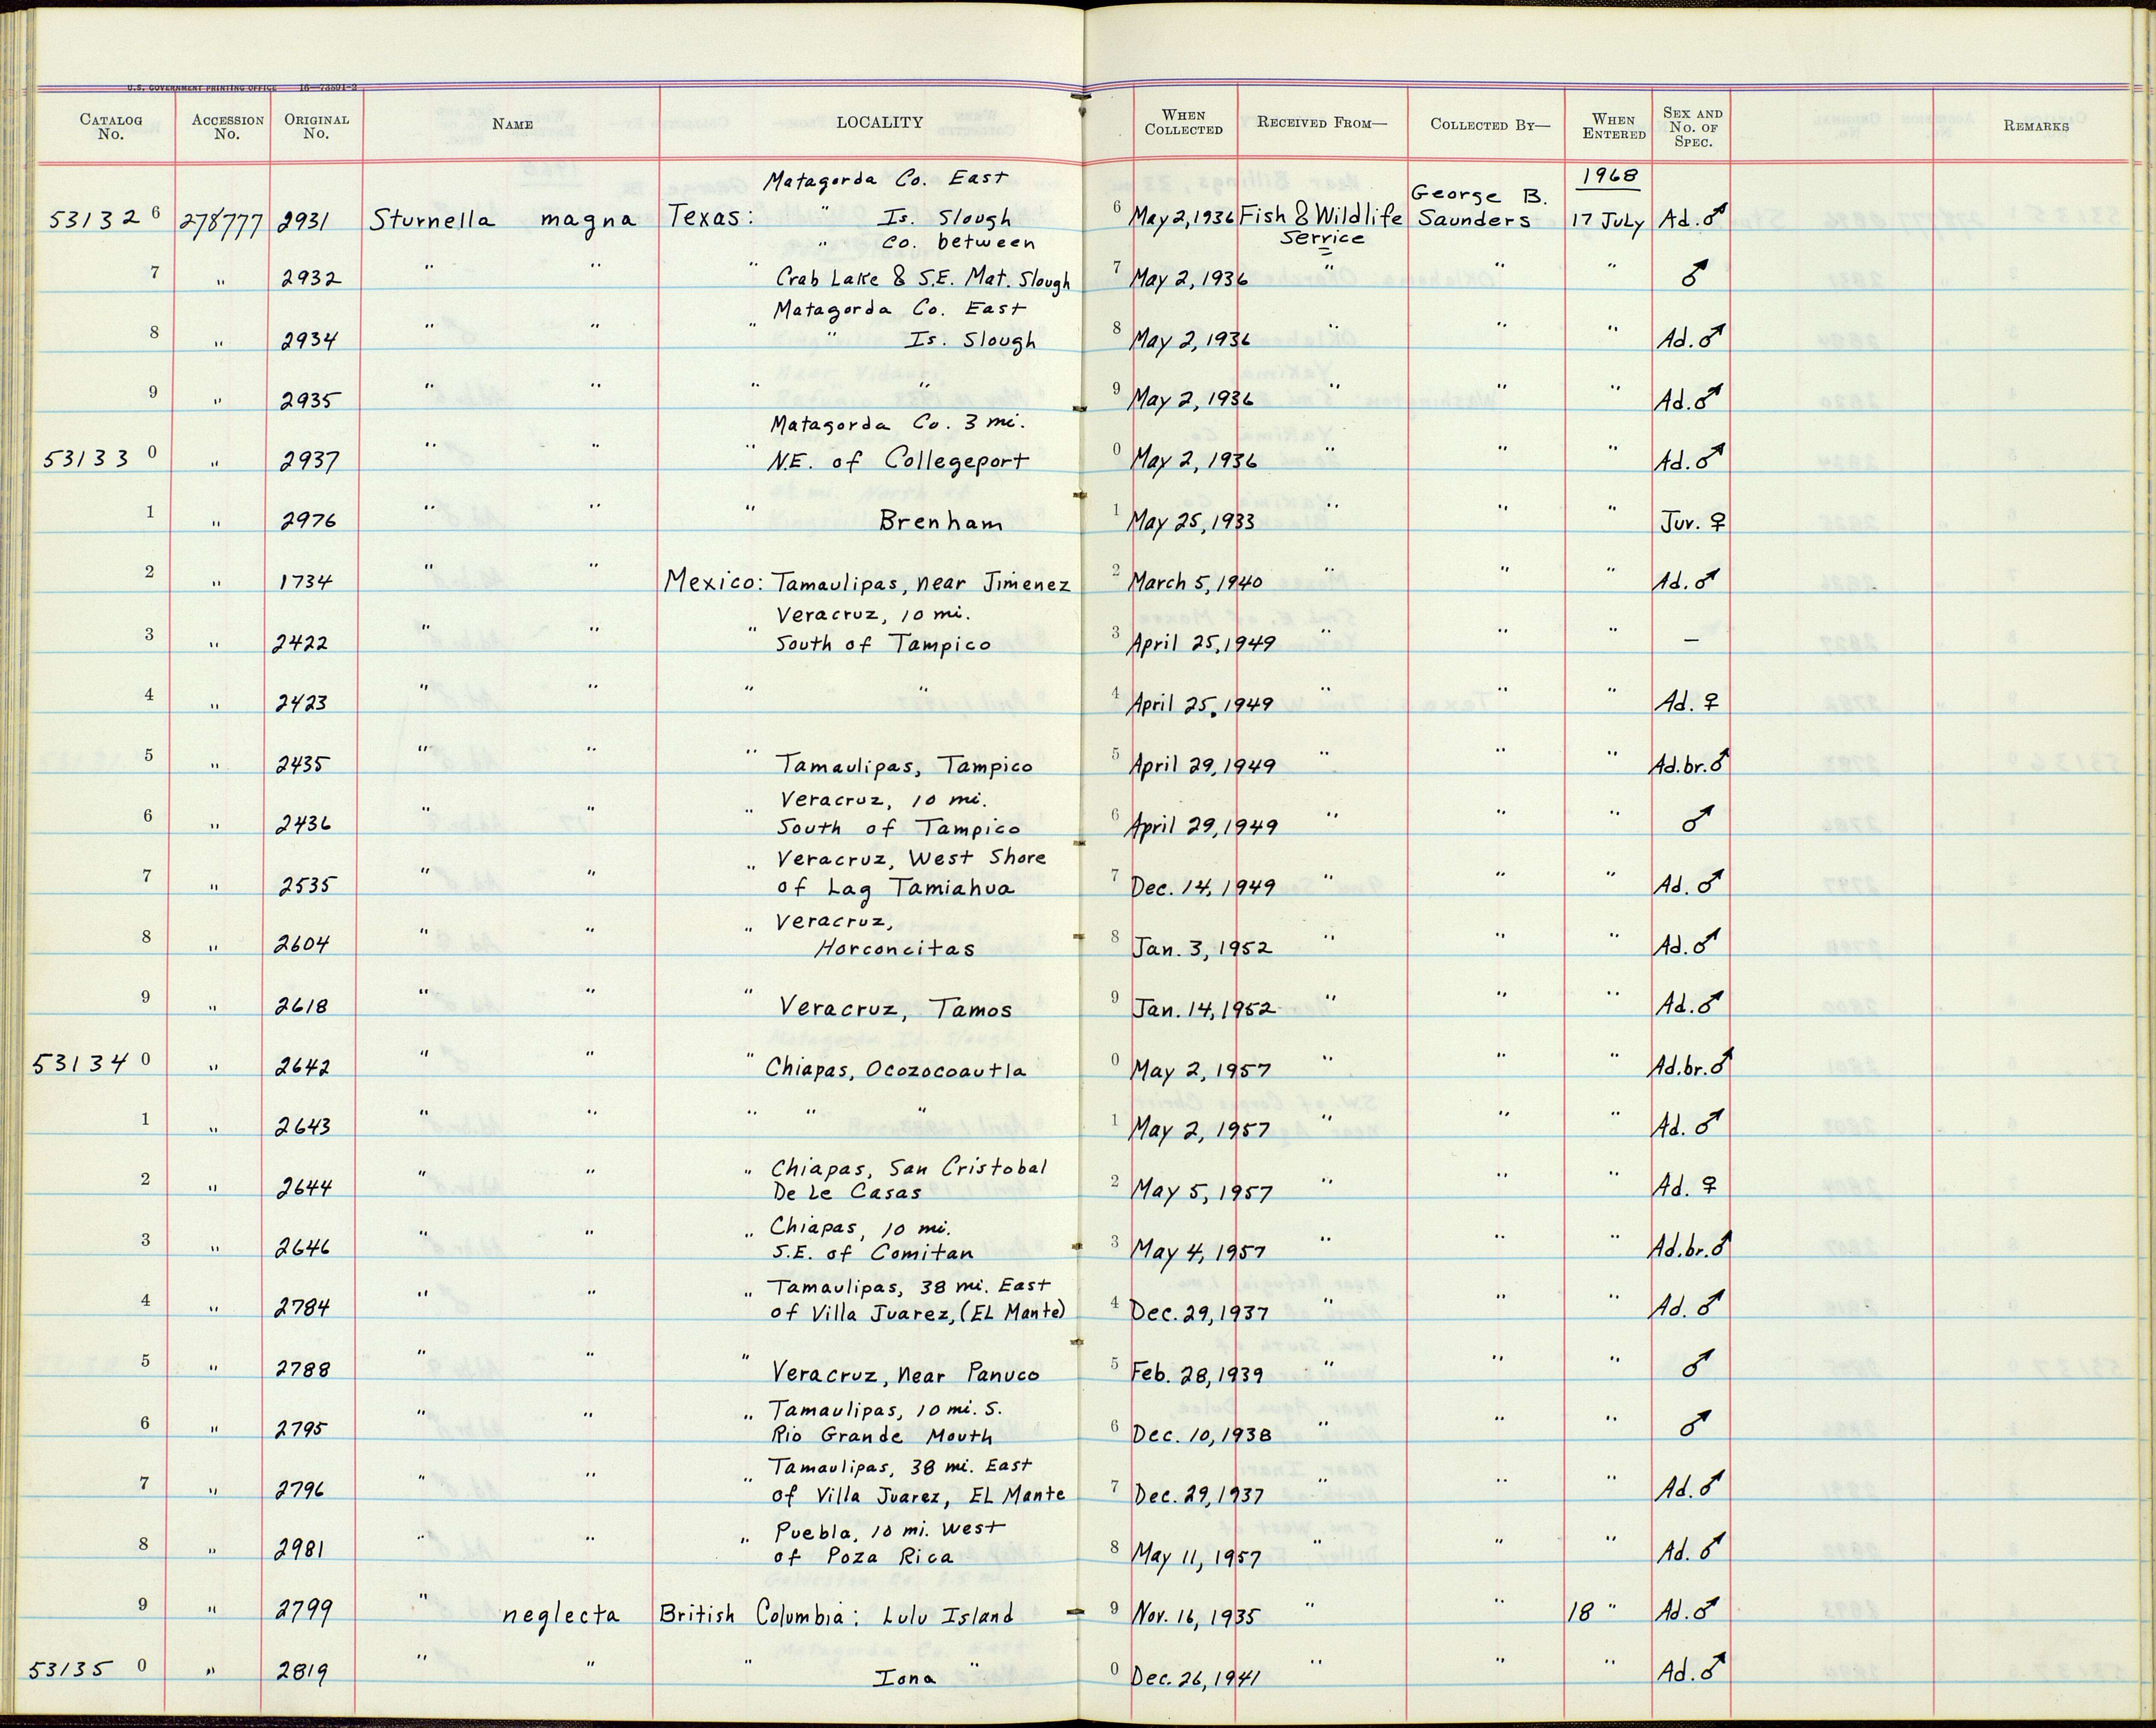 U.S. GOVERNMENT PRINTING OFFICE 16—73591-2
CATALOG No. ACCESSION No. ORIGINAL No. NAME LOCALITY WHEN COLLECTED RECEIVED FROM— COLLECTED BY— WHEN ENTERED SEX AND No. OF SPEC. REMARKS
Matagorda Co. East 1968
53132 6 278777 2931 Sturnella magna Texas: " Is. Slough 6 May 2, 1936 Fish & Wildlife Service George B. Saunders 17 July Ad. ♂
" Co. between
7 " 2932 " " " Crab Lake & S.E. Mat. Slough 7 May 2, 1936 " " " ♂
Matagorda Co. East
8 " 2934 " " " " Is. Slough 8 May 2, 1936 " " " Ad. ♂
9 " 2935 " " " " 9 May 2, 1936 " " " Ad. ♂
Matagorda Co. 3 mi.
53133 0 " 2937 " " " N.E. of Collegeport 0 May 2, 1936 " " " Ad. ♂
1 " 2976 " " " Brenham 1 May 25, 1933 " " " Juv. ♀
2 " 1734 " " Mexico: Tamaulipas, near Jimenez 2 March 5, 1940 " " " Ad. ♂
Veracruz, 10 mi.
3 " 2422 " " " South of Tampico 3 April 25, 1949 " " " —
4 " 2423 " " " " 4 April 25, 1949 " " " Ad. ♀
5 " 2435 " " " Tamaulipas, Tampico 5 April 29, 1949 " " " Ad. br. ♂
Veracruz, 10 mi.
6 " 2436 " " " South of Tampico 6 April 29, 1949 " " " ♂
Veracruz, West Shore
7 " 2535 " " " of Lag Tamiahua 7 Dec. 14, 1949 " " " Ad. ♂
Veracruz,
8 " 2604 " " " Horconcitas 8 Jan. 3, 1952 " " " Ad. ♂
9 " 2618 " " " Veracruz, Tamos 9 Jan. 14, 1952 " " " Ad. ♂
53134 0 " 2642 " " " Chiapas, Ocozocoautla 0 May 2, 1957 " " " Ad. br. ♂
1 " 2643 " " " " " 1 May 2, 1957 " " " Ad. ♂
Chiapas, San Cristobal
2 " 2644 " " " De Le Casas 2 May 5, 1957 " " " Ad. ♀
Chiapas, 10 mi.
3 " 2646 " " " S.E. of Comitan 3 May 4, 1957 " " " Ad. br. ♂
Tamaulipas, 38 mi. East
4 " 2784 " " " of Villa Juarez, (EL Mante) 4 Dec. 29, 1937 " " " Ad. ♂
5 " 2788 " " " Veracruz, near Panuco 5 Feb. 28, 1939 " " " ♂
Tamaulipas, 10 mi. S.
6 " 2795 " " " Rio Grande Mouth 6 Dec. 10, 1938 " " " ♂
Tamaulipas, 38 mi. East
7 " 2796 " " " of Villa Juarez, EL Mante 7 Dec. 29, 1937 " " " Ad. ♂
Puebla, 10 mi. West
8 " 2981 " " " of Poza Rica 8 May 11, 1957 " " " Ad. ♂
9 " 2799 " neglecta British Columbia: Lulu Island 9 Nov. 16, 1935 " " 18 " Ad. ♂
53135 0 " 2819 " " " Iona " 0 Dec. 26, 1941 " " " Ad. ♂